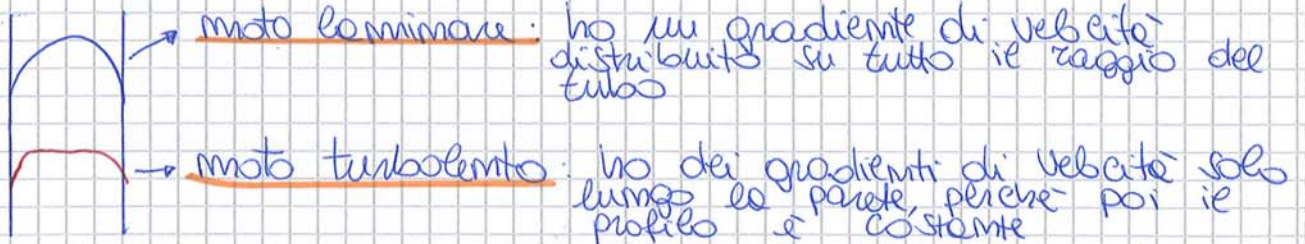 moto laminare: ho un gradiente di velocità
distribuito su tutto il raggio del
tubo
moto turbolento: ho dei gradienti di velocità solo
lungo la parete, perché poi il
profilo è costante